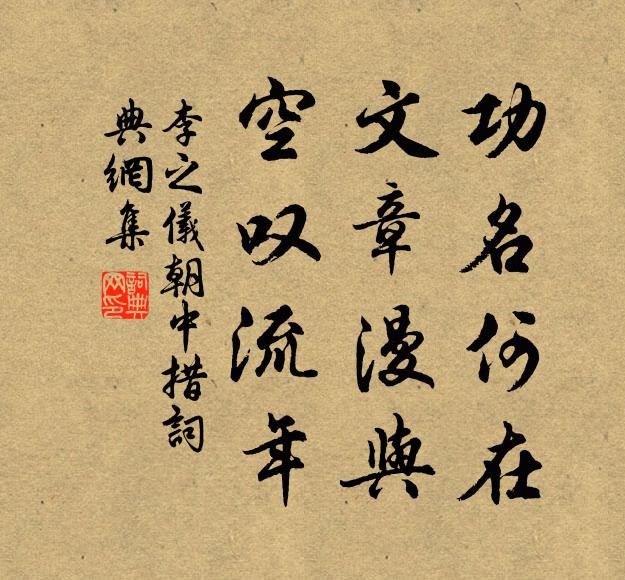 功名何在
文章漫與
空叹流年
李之儀朝中措詞
典網集
詞典网印